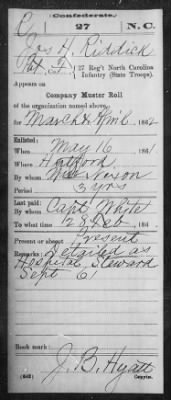 Confederate.
27 N.C.
Jas H. Riddick
Pvt
27 Reg't North Carolina
Infantry (State Troops).
Appears on
Company Muster Roll
of the organization named above,
for March & April, 1862
Enlisted:
When May 16, 1861
Where Hertford
By whom
Period 3 yrs
Last paid:
By whom Capt White
To what time 28 Feb, 186
Present or absent Present
Remarks: Detailed as
Hospital Steward
Sept 61
Book mark:
J. B. Hyatt
(642) Copyist.